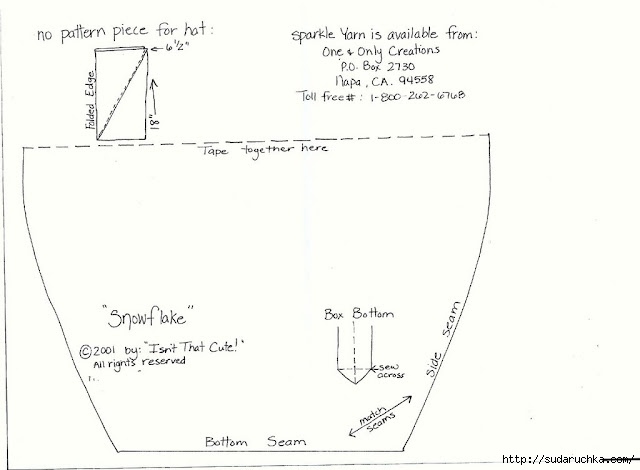 no pattern piece for hat:
6 1/2"
Folded Edge
18"
sparkle Yarn is available from:
One & Only Creations
P.O. Box 2730
Napa, CA. 94558
Toll free #: 1-800-262-6768
Tape together here
"Snowflake"
©2001 by: "Isn't That Cute!"
All rights reserved
Box Bottom
sew
across
side seam
match
seams
Bottom Seam
http://sudaruchka.com/